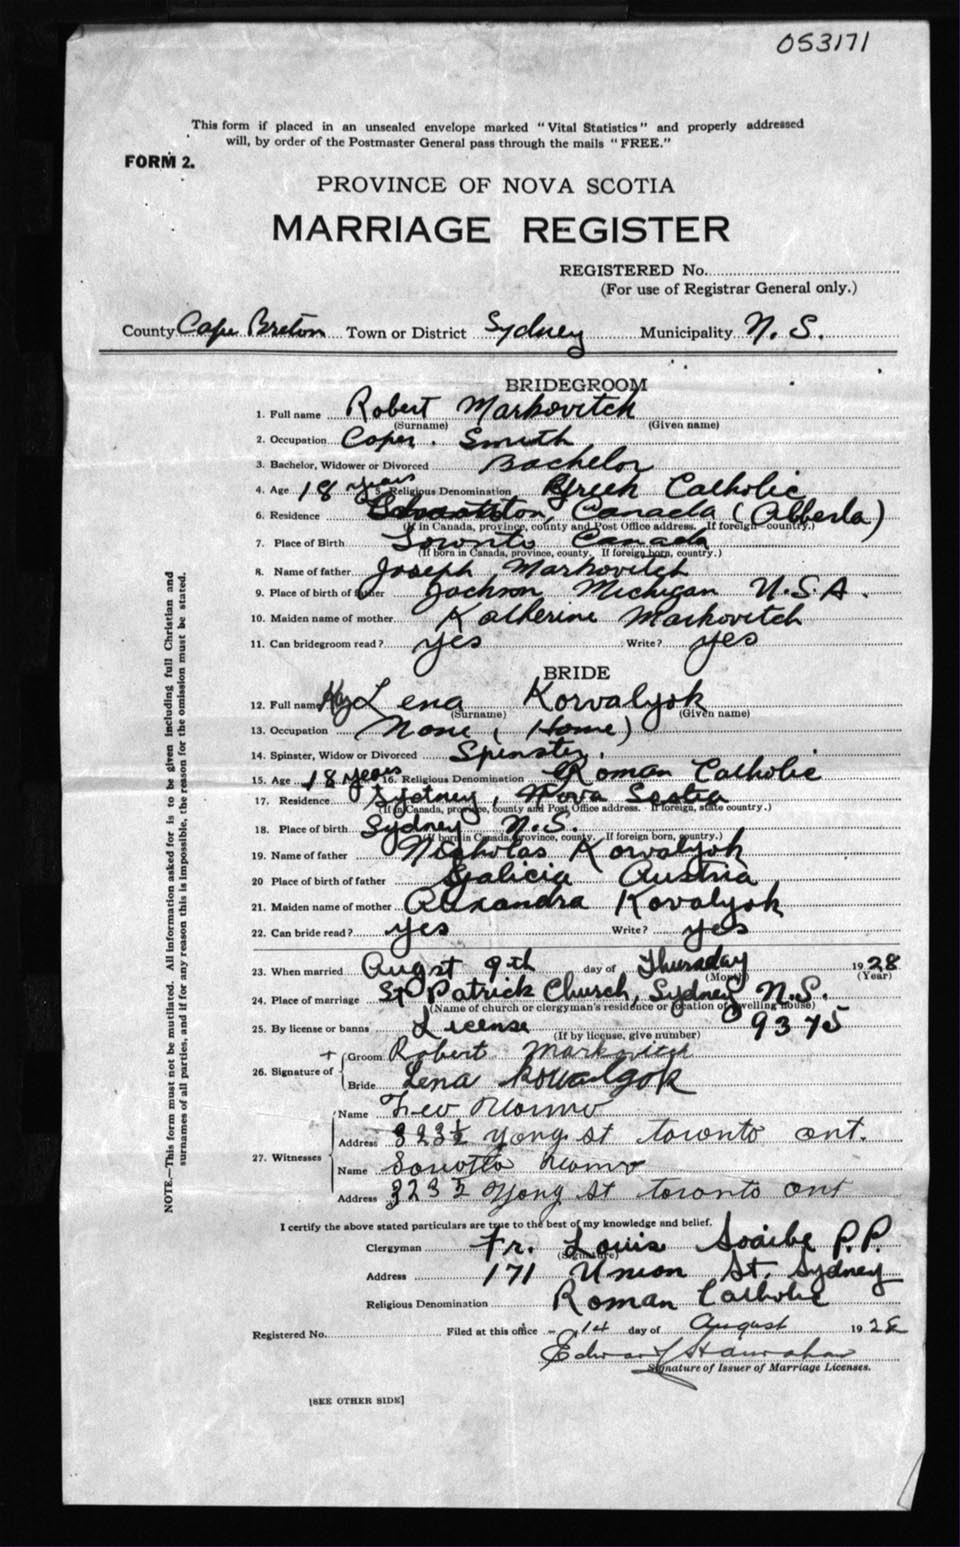 053171
This form if placed in an unsealed envelope marked "Vital Statistics" and properly addressed
will, by order of the Postmaster General pass through the mails "FREE."
FORM 2.
PROVINCE OF NOVA SCOTIA
MARRIAGE REGISTER
REGISTERED No.
(For use of Registrar General only.)
County Cape Breton Town or District Sydney Municipality N. S.
BRIDEGROOM
1. Full name Robert Markovitch
(Surname) (Given name)
2. Occupation Coper. Smith
3. Bachelor, Widower or Divorced Bachelor
4. Age 18 years 5. Religious Denomination Greek Catholic
6. Residence Canada (Alberta)
(If in Canada, province, county and Post Office address. If foreign country.)
7. Place of Birth Toronto Canada
(If born in Canada, province, county. If foreign born, country.)
8. Name of father Joseph Markovitch
9. Place of birth of father Jackson Michigan U.S.A.
10. Maiden name of mother Katherine Markovitch
11. Can bridegroom read? yes Write? yes
BRIDE
12. Full name Lena Korvalyok
(Surname) (Given name)
13. Occupation None (Home)
14. Spinster, Widow or Divorced Spinster.
15. Age 18 years 16. Religious Denomination Roman Catholic
17. Residence Sydney, Nova Scotia
(If in Canada, province, county and Post Office address. If foreign, state country.)
18. Place of birth Sydney N.S.
(If born in Canada, province, county. If foreign born, country.)
19. Name of father Nicholas Korvalyok
20 Place of birth of father Galicia Austria
21. Maiden name of mother Alexandra Kovalyok
22. Can bride read? yes Write? yes
23. When married Augst 9th day of Thursday 1928
(Month) (Year)
24. Place of marriage St Patrick Church, Sydney N.S.
(Name of church or clergyman's residence or location of dwelling house)
25. By license or banns License 9375
(If by license, give number)
26. Signature of
+ Groom Robert Markovich
Bride Lena Kowalyok
27. Witnesses
Name
Address 323½ Yong st toronto ont.
Name
Address 323½ Yong St toronto ont
I certify the above stated particulars are true to the best of my knowledge and belief.
Clergyman Fr. Louis P.P.
(Signature)
Address 171 Union St. Sydney
Religious Denomination Roman Catholic
Registered No. Filed at this office 14 day of August 1928
Signature of Issuer of Marriage Licenses.
[SEE OTHER SIDE]
NOTE.—This form must not be mutilated. All information asked for is to be given including full Christian and
surnames of all parties, and if for any reason this is impossible, the reason for the omission must be stated.